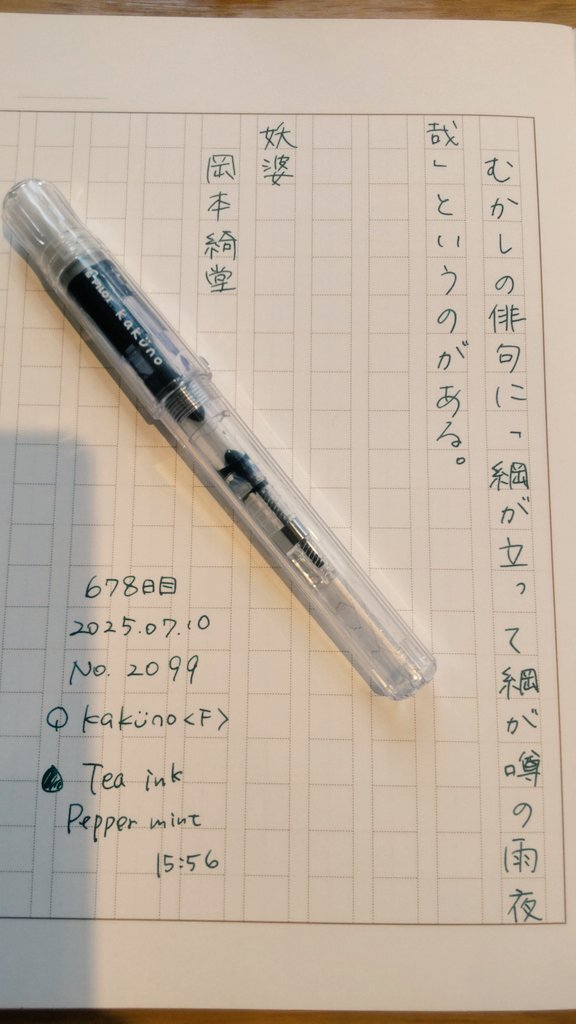 むかしの俳句に「綱が立って綱が噂の雨夜
哉」というのがある。
妖婆
岡本綺堂
PILOT kaküno
678日目
2025.07.10
No. 2099
kaküno<F>
Tea ink
Pepper mint
15:56